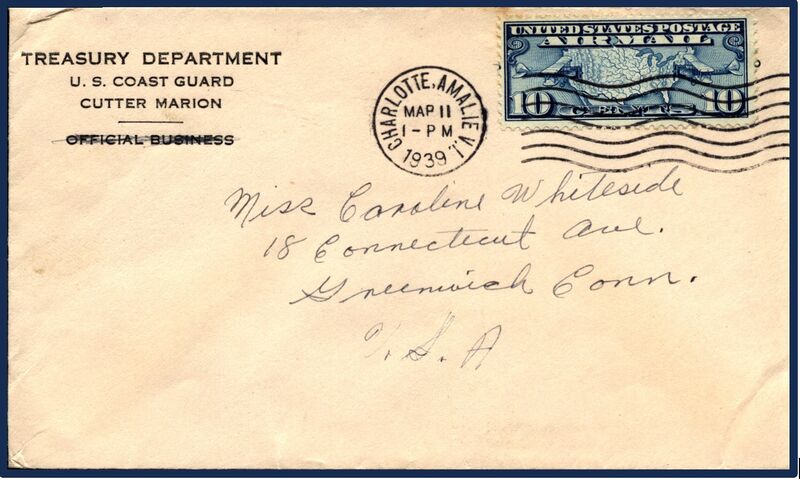 TREASURY DEPARTMENT
U. S. COAST GUARD
CUTTER MARION
OFFICIAL BUSINESS
CHARLOTTE, AMALIE V.I.
MAR 11
1-PM
1939
UNITED STATES POSTAGE
AIR MAIL
10 CENTS 10
Miss Caroline Whiteside
18 Connecticut Ave.
Greenwich Conn.
U.S.A